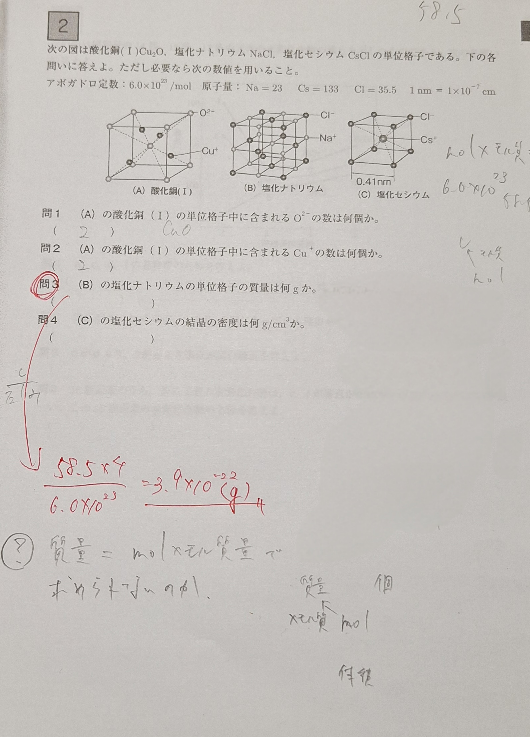 58.5
2
次の図は酸化銅(Ⅰ)Cu₂O，塩化ナトリウム NaCl，塩化セシウム CsClの単位格子である。下の各
問いに答えよ。ただし必要なら次の数値を用いること。
アボガドロ定数：6.0×10²³/mol 原子量：Na＝23 Cs＝133 Cl＝35.5 1 nm＝1×10⁻⁷ cm
O²⁻
Cu⁺
(A) 酸化銅(Ⅰ)
Cl⁻
Na⁺
(B) 塩化ナトリウム
Cl⁻
Cs⁺
0.41nm
(C) 塩化セシウム
mol×モル質
6.0×10²³
問1 (A)の酸化銅(Ⅰ)の単位格子中に含まれるO²⁻の数は何個か。
( 2 ) CuO
問2 (A)の酸化銅(Ⅰ)の単位格子中に含まれるCu⁺の数は何個か。
( 2 )
mol
問3 (B)の塩化ナトリウムの単位格子の質量は何gか。
( )
問4 (C)の塩化セシウムの結晶の密度は何g/cm³か。
( )
58.5×4
6.0×10²³
=3.9×10⁻²²(g)
? 質量 = mol×モル質量で
求められないのか.
質量 個
×モル質 mol
体積